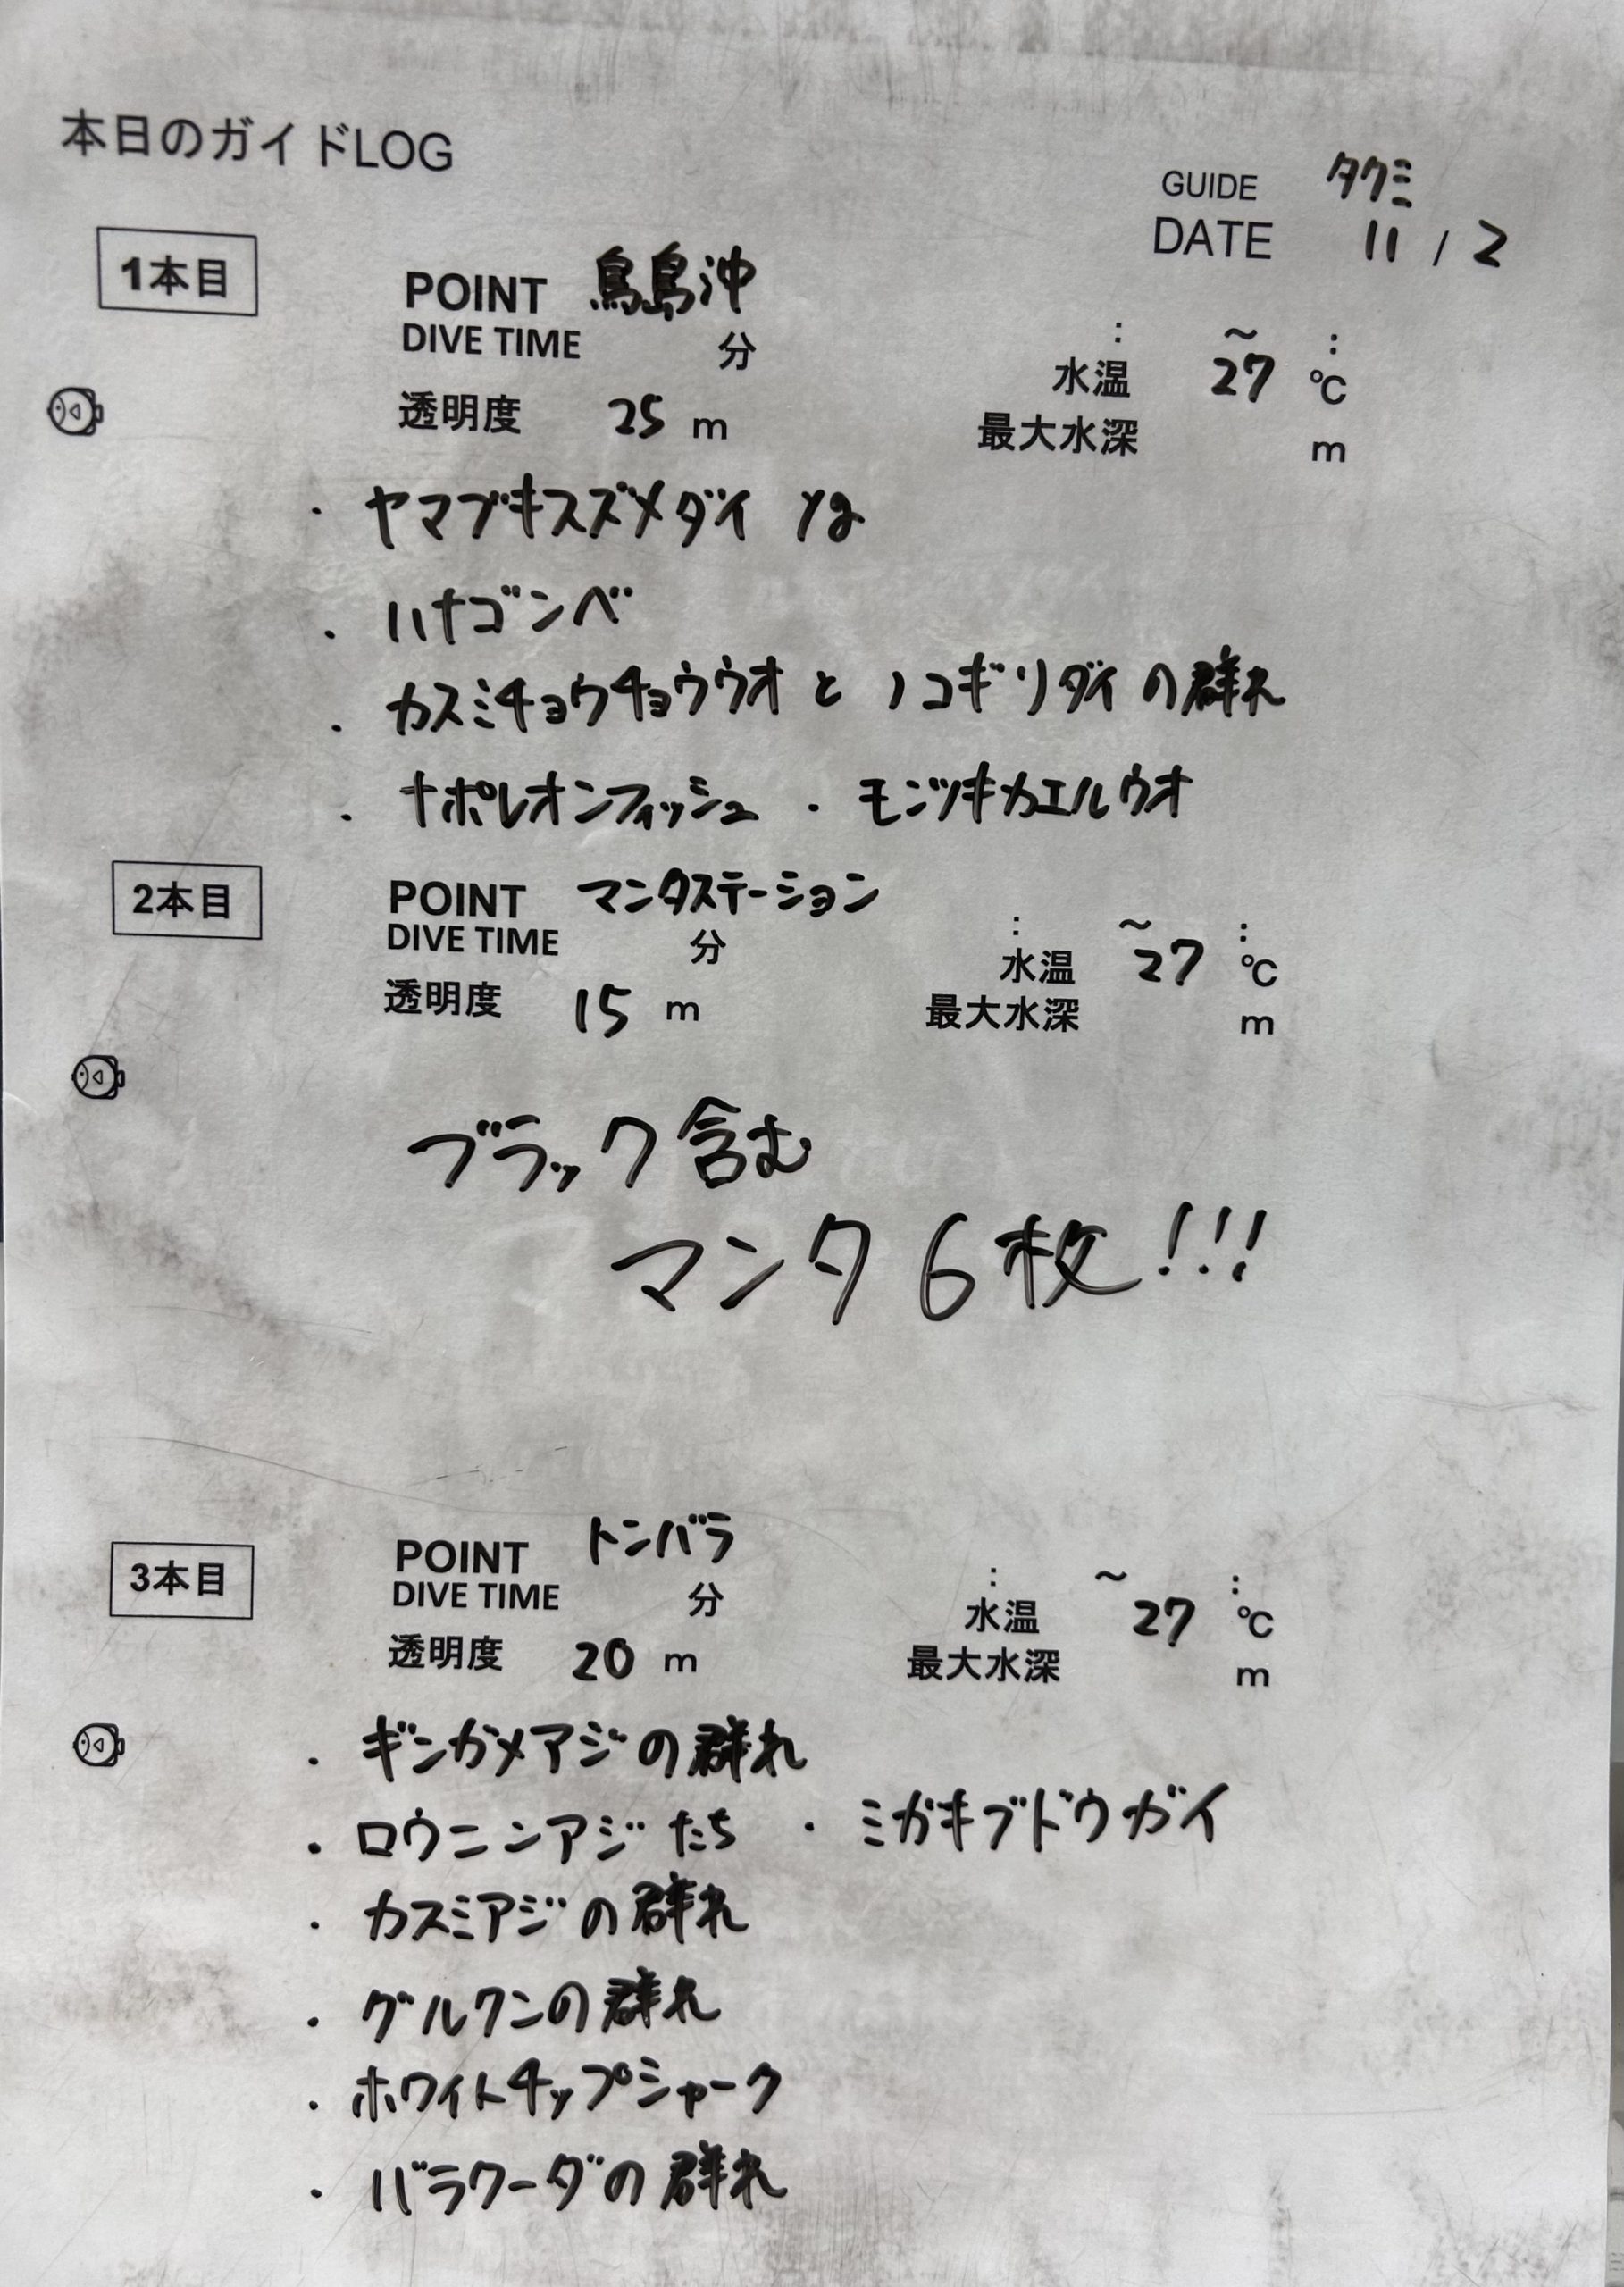 本日のガイドLOG
GUIDE タクミ
DATE 11 / 2
1本目
POINT 鳥島沖
DIVE TIME 分 : ~ :
水温 27 ℃
透明度 25 m
最大水深 m
・ヤマブキスズメダイ yg
・ハナゴンベ
・カスミチョウチョウウオ と ノコギリダイの群れ
・ナポレオンフィッシュ ・モンツキカエルウオ
2本目
POINT マンタステーション
DIVE TIME 分 : ~ :
水温 27 ℃
透明度 15 m
最大水深 m
ブラック含む
マンタ 6枚!!!
3本目
POINT トンバラ
DIVE TIME 分 : ~ :
水温 27 ℃
透明度 20 m
最大水深 m
・ギンガメアジの群れ
・ロウニンアジたち ・ミガキブドウガイ
・カスミアジの群れ
・グルクンの群れ
・ホワイトチップシャーク
・バラクーダの群れ